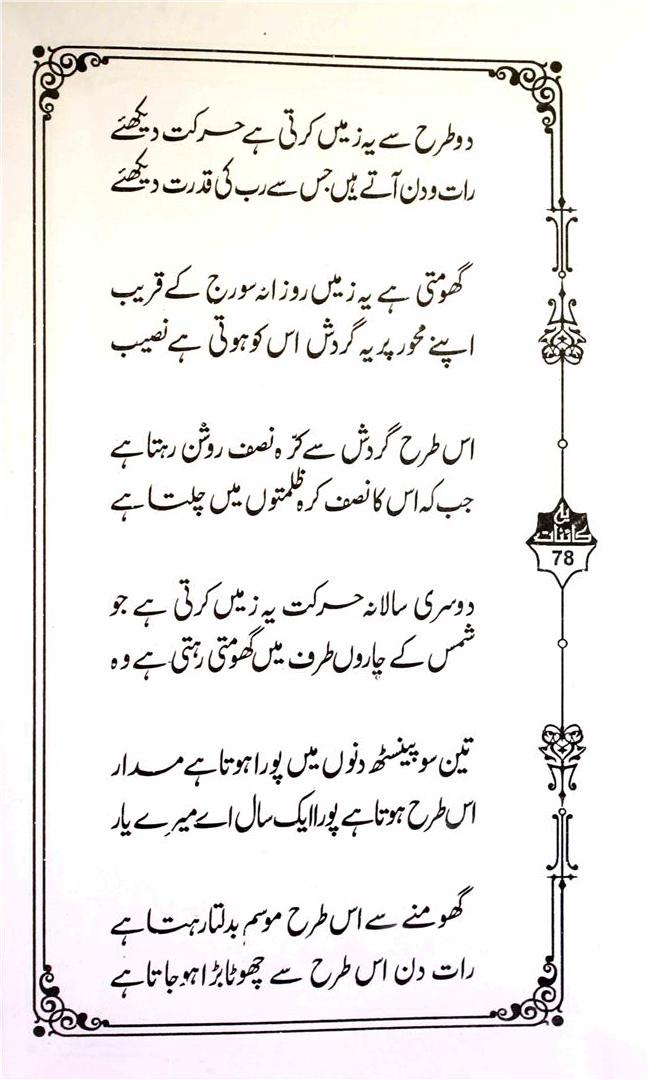 دو طرح سے یہ زمیں کرتی ہے حرکت دیکھئے
رات و دن آتے ہیں جس سے رب کی قدرت دیکھئے
گھومتی ہے یہ زمیں روزانہ سورج کے قریب
اپنے محور پر یہ گردش اس کو ہوتی ہے نصیب
اس طرح گردش سے کرّہ نصف روشن رہتا ہے
جب کہ اس کا نصف کرہ ظلمتوں میں چلتا ہے
دوسری سالانہ حرکت یہ زمیں کرتی ہے جو
شمس کے چاروں طرف میں گھومتی رہتی ہے وہ
تین سو پینسٹھ دنوں میں پورا ہوتا ہے مدار
اس طرح ہوتا ہے پورا ایک سال اے میرے یار
گھومنے سے اس طرح موسم بدلتا رہتا ہے
رات دن اس طرح سے چھوٹا بڑا ہو جاتا ہے
یہ
کائنات
78